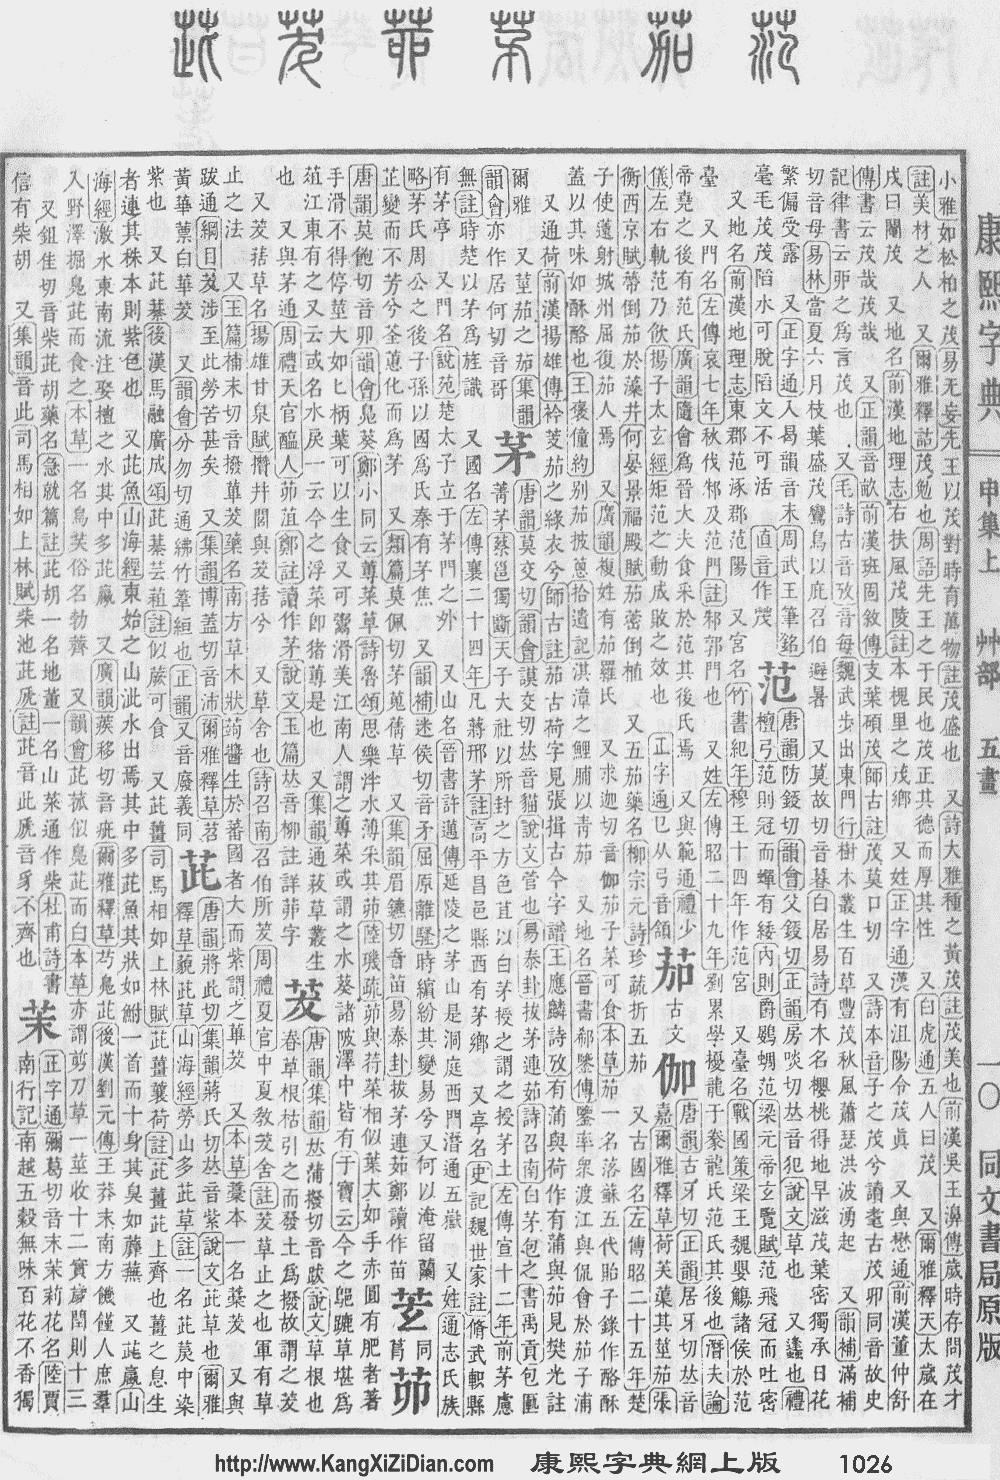 范 茄 茅 茆 茇 茈
康熙字典 申集上 艸部 五畫 一〇 同文書局原版
小雅如松柏之茂易无妄先王以茂對時育萬物註茂盛也 又詩大雅種之黃茂註茂美也前漢吳王濞傳歲時存問茂才
註美材之人 又爾雅釋詁茂勉也周語先王之于民也茂正其德而厚其性 又白虎通五人曰茂 又爾雅釋天太歲在
戊曰閹茂 又地名前漢地理志右扶風茂陵註本槐里之茂鄉 又姓正字通漢有沮陽令茂眞 又與懋通前漢董仲舒
傳書云茂哉茂哉 又正韻音畝前漢班固敘傳支葉碩茂師古註茂莫口切 又詩本音子之茂兮讀耄古茂卯同音故史
記律書云丣之爲言茂也 又毛詩古音攷音每魏武步出東門行樹木叢生百草豐茂秋風蕭瑟洪波湧起 又韻補滿補
切音母易林當夏六月枝葉盛茂鸞鳥以庇召伯避暑 又莫故切音暮白居易詩有木名櫻桃得地早滋茂葉密獨承日花
繁偏受露 又正字通入曷韻音末周武王筆銘
毫毛茂茂陷水可脫陷文不可活 直音作
范 唐韻防錽切韻會父錽切正韻房啖切𠀤音犯說文草也 又蠭也禮
檀弓范則冠而蟬有緌內則爵鷃蜩范梁元帝玄覽賦范飛冠而吐密
又地名前漢地理志東郡范涿郡范陽 又宮名竹書紀年穆王十四年作范宮 又臺名戰國策梁王魏嬰觴諸侯於范
臺 又門名左傳哀七年秋伐邾及范門註邾郭門也 又姓左傳昭二十九年劉累學擾龍于豢龍氏范氏其後也潛夫論
帝堯之後有范氏廣韻隨會爲晉大夫食采於范其後氏焉 又與範通禮少
儀左右軌范乃飮揚子太玄經矩范之動成敗之效也 正字通㔾从弓音頷
茄 古文 伽 唐韻古牙切正韻居牙切𠀤音
嘉爾雅釋草荷芙蕖其莖茄張
衡西京賦蔕倒茄於藻井何晏景福殿賦茄蔤倒植 又五茄藥名柳宗元詩珍蔬折五茄 又古國名左傳昭二十五年楚
子使薳射城州屈復茄人焉 又廣韻複姓有茄羅氏 又求迦切音伽茄子菜可食本草茄一名落蘇五代貽子錄作酪酥
蓋以其味如酥酪也王褒僮約別茄披蔥拾遺記淇漳之鯉脯以靑茄 又地名晉書郗鑒傳鑒率衆渡江與侃會於茄子浦
又通荷前漢揚雄傳衿芰茄之綠衣兮師古註茄古荷字見張揖古今字譜王應麟詩攷有蒲與荷作有蒲與茄見樊光註
爾雅 又莖茄之茄集韻
韻會亦作居何切音哥
茅 唐韻莫交切韻會謨交切𠀤音貓說文菅也易泰卦拔茅連茹詩召南白茅包之書禹貢包匭
菁茅蔡邕獨斷天子大社以所封之方色苴以白茅授之謂之授茅土左傳宣十二年前茅慮
無註時楚以茅爲旌識 又國名左傳襄二十四年凡蔣邢茅註高平昌邑縣西有茅鄉 又亭名史記魏世家註脩武軹縣
有茅亭 又門名說苑楚太子立于茅門之外 又山名晉書許邁傳延陵之茅山是洞庭西門潛通五嶽 又姓通志氏族
略茅氏周公之後子孫以國爲氏秦有茅焦 又韻補迷侯切音矛屈原離騷時繽紛其變易兮又何以淹留蘭
芷變而不芳兮荃蕙化而爲茅 又類篇莫佩切茅蒐蒨草 又集韻眉鑣切音苗易泰卦拔茅連茹鄭讀作苗
茆
唐韻莫飽切音卯韻會鳧葵鄭小同云蓴菜草詩魯頌思樂泮水薄采其茆陸璣疏茆與荇菜相似葉大如手赤圓有肥者著
手滑不得停莖大如匕柄葉可以生食又可鬻滑美江南人謂之蓴菜或謂之水葵諸陂澤中皆有于寶云今之䳱蹗草堪爲
葅江東有之又云或名水戾一云今之浮菜卽猪蓴是也 又集韻通菽草叢生
也 又與茅通周禮天官醢人茆葅鄭註讀作茅說文玉篇𠀤音柳註詳茆字
茇 唐韻集韻𠀤蒲撥切音跋說文草根也
春草根枯引之而發土爲撥故謂之茇
又茇葀草名揚雄甘泉賦攢幷閭與茇葀兮 又草舍也詩召南召伯所茇周禮夏官中夏敎茇舍註茇草止之也軍有草
止之法 又玉篇補末切音撥蓽茇藥名南方草木狀蒟醬生於蕃國者大而紫謂之蓽茇 又本草藁本一名藁茇 又與
跋通綱目茇涉至此勞苦甚矣 又集韻博蓋切音沛爾雅釋草苕
黃華蔈白華茇 又韻會分勿切通紼竹篾緪也正韻又音廢義同
茈 唐韻將此切集韻蔣氏切𠀤音紫說文茈草也爾雅
釋草藐茈草山海經勞山多茈草註一名茈䓞中染
紫也 又茈綦後漢馬融廣成頌茈萁芸蒩註似蕨可食 又茈薑司馬相如上林賦茈薑蘘荷註茈薑茈上齊也薑之息生
者連其株本則紫色也 又茈魚山海經東始之山泚水出焉其中多茈魚其狀如鮒一首而十身其臭如蘪蕪 又茈蠃山
海經激水東南流注娶檀之水其中多茈蠃 又廣韻疾移切音疵爾雅釋草芍鳧茈後漢劉元傳王莽末南方饑僅人庶羣
入野澤掘鳧茈而食之本草一名烏芙俗名勃薺 又韻會茈菰似鳧茈而白本草亦謂剪刀草一莖收十二實歲閏則十三
又鉏佳切音柴茈胡藥名急就篇註茈胡一名地薰一名山菜通作柴杜甫詩書
信有柴胡 又集韻音此司馬相如上林賦柴池茈虒註茈音此虒音豸不齊也
茉 正字通彌葛切音末茉莉花名陸賈
南行記南越五穀無味百花不香獨
http://www.KangXiZiDian.com 康熙字典網上版 1026